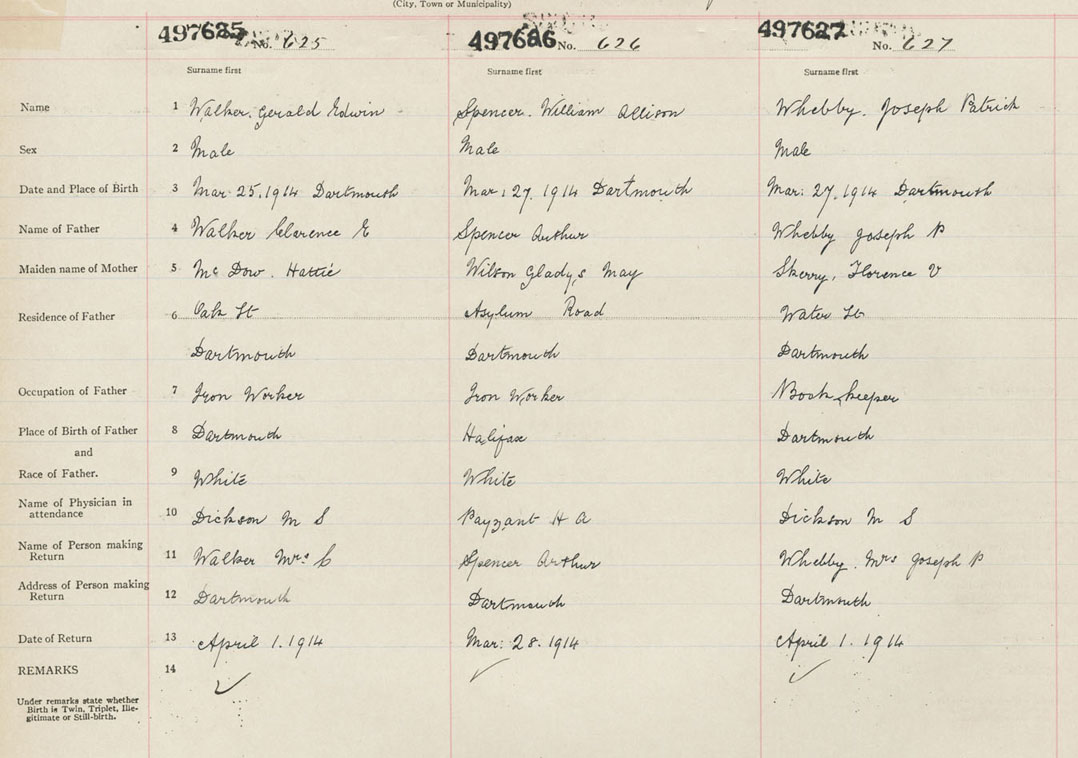 (City, Town or Municipality)
497625 No. 625 497626 No. 626 497627 No. 627
Surname first Surname first Surname first
Name 1 Walker. Gerald Edwin Spencer. William Allison Whebby. Joseph Patrick
Sex 2 Male Male Male
Date and Place of Birth 3 Mar 25. 1914 Dartmouth Mar: 27. 1914 Dartmouth Mar: 27. 1914 Dartmouth
Name of Father 4 Walker Clarence E Spencer Arthur Whebby Joseph P
Maiden name of Mother 5 Mc Dow. Hattie Wilson Gladys May Skerry, Florence V
Residence of Father 6 Oak St Asylum Road Water St
Dartmouth Dartmouth Dartmouth
Occupation of Father 7 Iron Worker Iron Worker Book keeper
Place of Birth of Father 8 Dartmouth Halifax Dartmouth
and
Race of Father. 9 White White White
Name of Physician in
attendance 10 Dickson M S Payzant H A Dickson M S
Name of Person making
Return 11 Walker Mrs C Spencer Arthur Whebby. Mrs Joseph P
Address of Person making
Return 12 Dartmouth Dartmouth Dartmouth
Date of Return 13 April 1. 1914 Mar: 28. 1914 April 1. 1914
REMARKS 14
Under remarks state whether
Birth is Twin, Triplet, Ille-
gitimate or Still-birth.